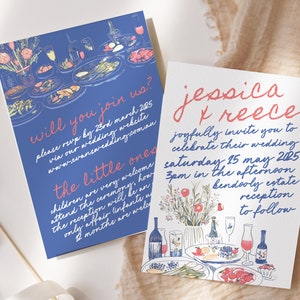 will you join us?
please rsvp by 23rd march 2015
via our wedding website
www.evanswedding.com.au
the little ones
children are very welcome
attend the ceremony, how
the reception will be an a
only affair (infants u
12 months are welc
jessica
+ reece
joyfully invite you to
celebrate their wedding
saturday 15 may 2015
3pm in the afternoon
bendooly estate
reception
to follow